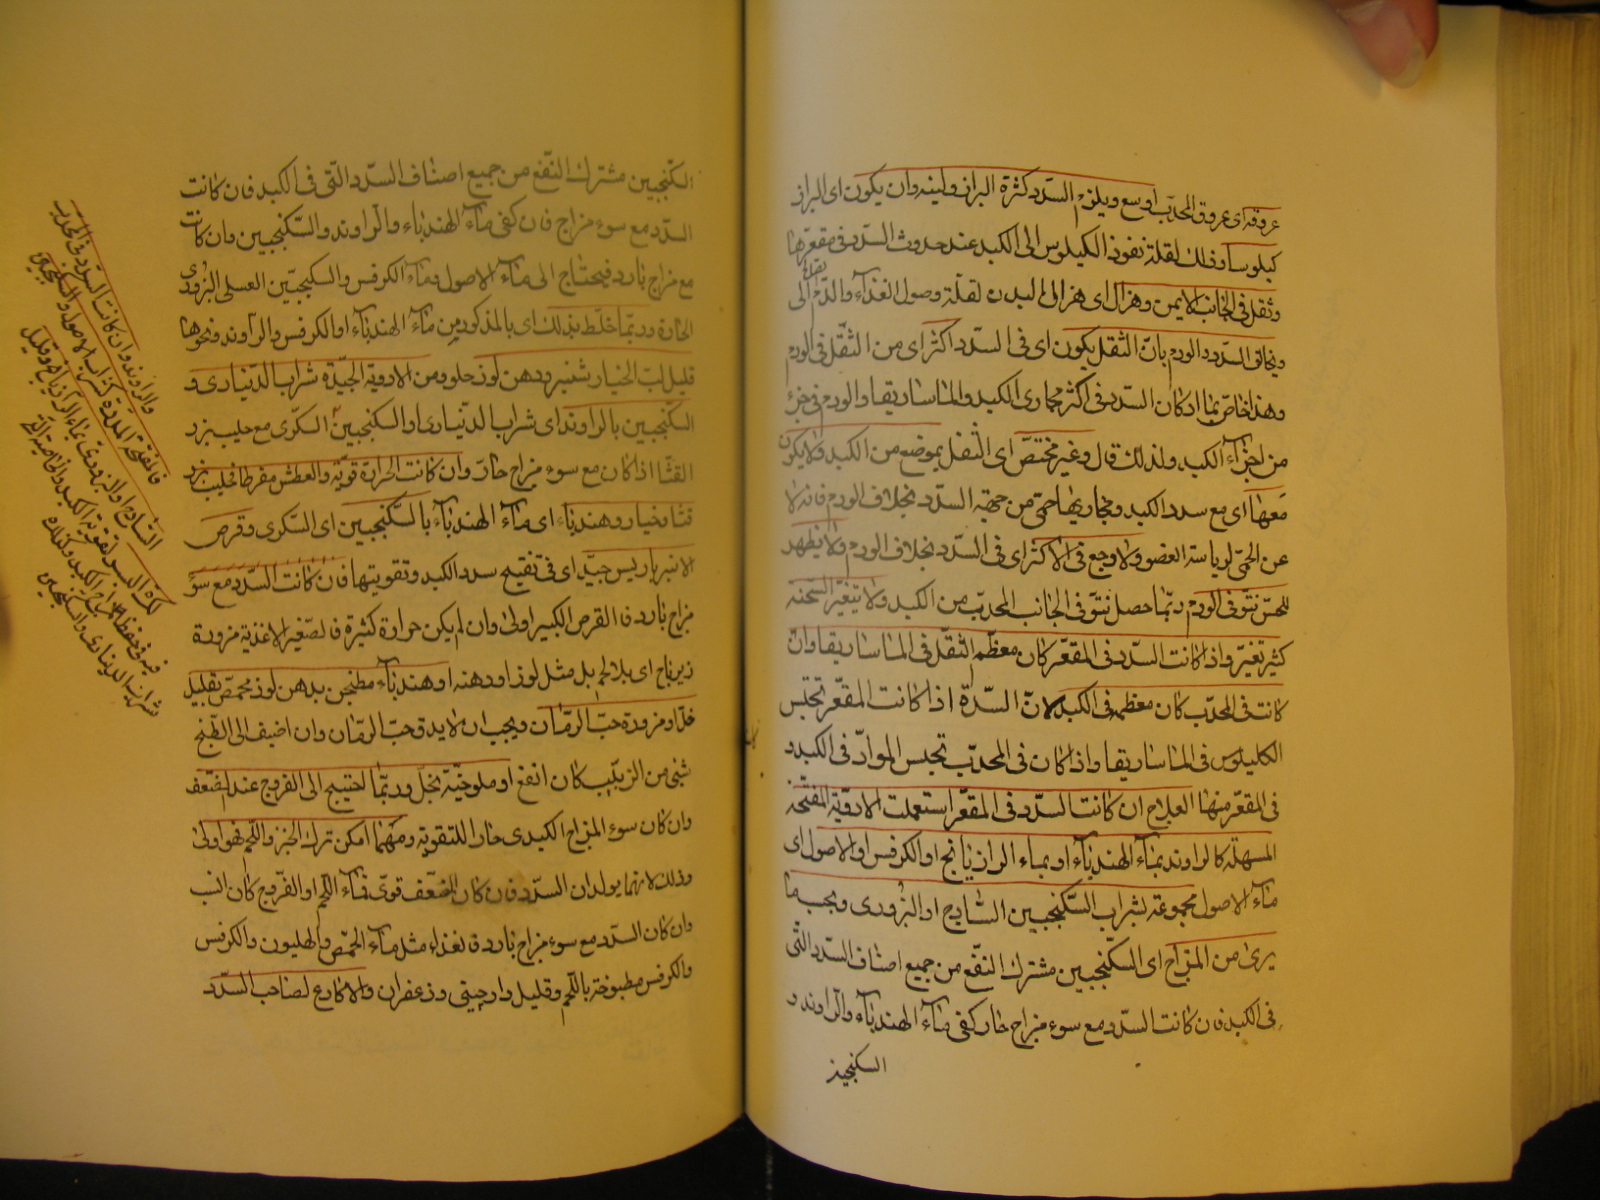 عروقه اى عروق المحدّب اوسع ويلزم السدد كثرة البراز ولينه وان يكون اى البراز
كيلوسا وذلك لقلة نفوذ الكيلوس الى الكبد عند حدوث السدد فى مقعرها
وثقل فى الجانب الايمن وهزال اى هزال البدن لقلة وصول الغذاء والدم الى
ويخالف السدد الورم بان الثقل يكون اى فى السدد اكثر اى من الثقل فى الورم
وهذا خاص بما اذ كان السدد فى اكثر مجارى الكبد والماساريقا والورم فى جزء
من اجزاء الكبد ولذلك قال وغير مختص اى الثقل بموضع من الكبد ولا يكون
معها اى مع سدد الكبد ومجاريها حمى من جهة السدد بخلاف الورم فانه لا
عن الحمى لرياسة العضو ولا وجع فى الاكثر اى فى السدد بخلاف الورم ولا يظهر
للحس نتو فى الورم ربما حصل نتو فى الجانب المحدب من الكبد ولا يتغير السحنه
كثير تغير واذا كانت السدد فى المقعر كان معظم الثقل فى الماساريقا وان
كانت فى المحدب كان معظمه فى الكبد لان السدة اذا كانت المقعر تحتبس
الكليلوس فى الماساريقا واذا كان فى المحدب تحبس المواد فى الكبد و
فى المقعر منها العلاج ان كانت السدد فى المقعر استعملت الادوية المفتحة
المسهلة كالراوند بماء الهندباء او بماء الرازيانج او الكرفس او الاصول اى
ماء الاصول مجموعة بشراب السكنجبين الساذج او البزورى وبحسب ما
يرى من المزاج اى السكنجبين مشترك النفع من جميع اصناف السدد التى
فى الكبد فان كانت السدد مع سوء مزاج حار كفى ماء الهندباء والراوند و
السكنجبين
السكنجبين مشترك النفع من جميع اصناف السدد التى فى الكبد فان كانت
السدد مع سوء مزاج فان كفى ماء الهندباء والراوند والسكنجبين وان كانت
مع مزاج بارد فيحتاج الى ماء الاصول وماء الكرفس والسكنجبين العسلى البزورى
الحارة وربما خلط بذلك اى بالمذكور من ماء الهندباء او الكرفس والراوند ونحوها
قليل لب الخيار شنبر ودهن لوز حلو ومن الادوية الجيدة شراب الدينارى و
السكنجبين بالراوند اى شراب الدينارى والسكنجبين السكرى مع حليب بزر
القثا اذا كان مع سوء مزاج حار وان كانت الحرارة قوية والعطش مفرطا فحليب بزر
قثا وخيار وهندباء اى ماء الهندباء بالسكنجبين اى السكرى وقرص
الانبرباريس جيد اى فى تفتيح سدد الكبد وتقويتها فان كانت السدد مع سوء
مزاج بارد فالقرص الكبير اولى وان لم يكن حرارة كثيرة فالصغير الاغذية مزورة
زيرباج اى بلا لحم بل مثل لوز او دهنه او هندباء مطبخن بدهن لوز محمص بقليل
خل او مزورة حب الرمان ويجب ان لا يدق حب الرمان وان اضيف الى الطبخ
شئى من الزبيب كان انفع او ملوخية بخل وربما احتيج الى الفروج عند الضعف
وان كان سوء المزاج الكبدى حار للتقوية ومهما امكن ترك الخبز واللحم فهو اولى
وذلك لانهما يولدان السدد فان كان الضعف قوى فماء اللحم او الفروج كان انسب
وان كان السدد مع سوء مزاج بارد فالغذاء مثل ماء الحمص والهليون والكرفس
والكرفس مطبوخة باللحم وقليل دارچينى وزعفران والاكارع لصاحب السدد
والراوند وان كانت السدد فى المحدب
فالمفتحة المدرة كشراب الاصول والسكنجبين
الساذج او البزورى بماء الرازيانج وقليل